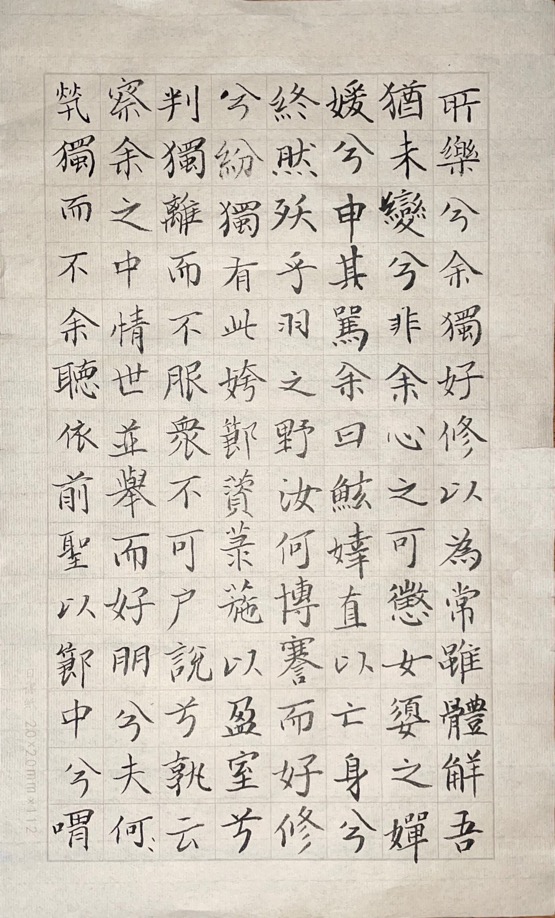 所樂兮余獨好修以為常雖體解吾
猶未變兮非余心之可懲女嬃之嬋
媛兮申其罵余曰鮌婞直以亡身兮
終然殀乎羽之野汝何博謇而好修
兮紛獨有此姱節薋菉葹以盈室兮
判獨離而不服衆不可户說兮孰云
察余之中情世並舉而好朋兮夫何
煢獨而不余聽依前聖以節中兮喟
20×20mm*112